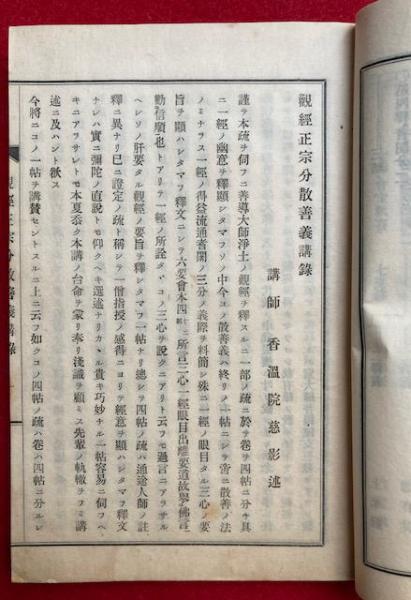 觀經正宗分散善義講錄
講師香溫院慈影述
謹ヲ本疏ヲ伺フニ善導大師淨土ノ觀經ヲ釋スルニ一部ノ疏ニ於テ卷ヲ四帖ニ分チ具
ニ一經ノ幽意ヲ釋顯シタマフソノ中今コノ散善義ハ終リノ一帖ニシテ啻ニ散善ノ法
ノミナラス一經ノ得益流通耆闍ノ三分ノ義際ヲ料簡シ殊ニ一經ノ眼目タル三心ノ要
旨ヲ顯ハシタマフ釋文ニシテ六要會本四
所言三心一經眼目出離要道故學佛言
勸信順也トアリテ一經ノ所詮タヽコノ三心ヲ說クニアリト云フモ過言ニアラサル
ヘシソノ肝要タル觀經ノ要旨ヲ釋シタマフ一帖ナリ總シテ四帖ノ疏ハ通途人師ノ註
釋ニ異ナリ已ニ證定ノ疏ト稱シテ一僧指授ノ感得ニヨリテ經意ヲ顯ハシタマフ釋文
ナレハ實ニ彌陀ノ直說トモ仰クヘキ選述ナリカヽル貴キ巧妙ナル一帖容易ニ伺フヘ
キニアラサレトモ本夏忝ク本講ノ台命ヲ蒙リ奉リ淺識ヲ顧ミス先輩ノ軌轍ヲフミ講
述ニ及ハント欲ス
今將ニコノ一帖ヲ講賛セントスルニ上ニ云フ如クコノ四帖ノ疏ハ卷ハ四帖ニ分ルレ
觀經正宗分散善義講錄